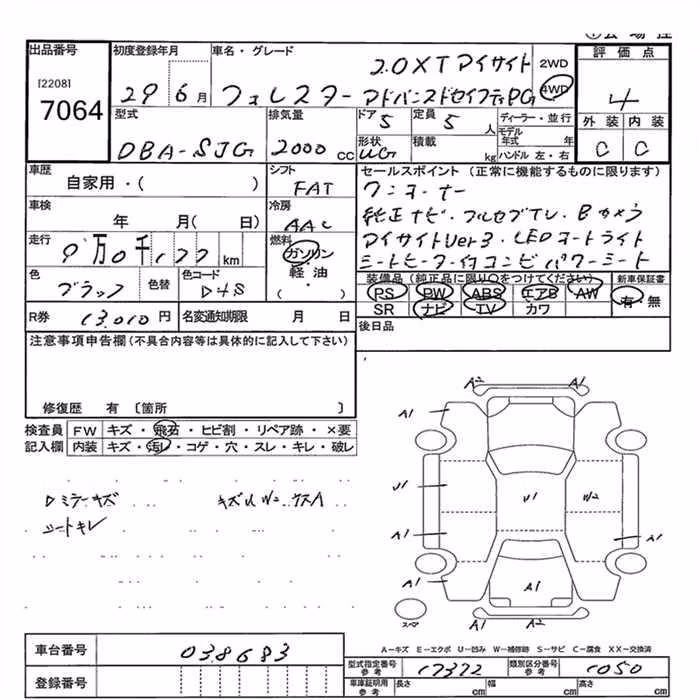 出品番号 初度登録年月 車名・グレード 評価点
[2208]
7064
29 6月 フォレスター 2.0XT アイサイト 2WD
アドバンスドセイフティPG 4WD
4
外装 内装
C C
型式 排気量 ドア 定員 ディーラー・並行
DBA-SJG 2000 cc 5 5 人 モデル年式 年
形状 積載
UG kg ハンドル 左・右
車歴 シフト セールスポイント (正常に機能するものに限ります)
自家用・( ) FAT ワンオーナー
車検 冷房 純正ナビ・フルセグTV・Bカメラ
年 月( 日) AAC アイサイトVer3・LEDオートライト
走行 燃料 シートヒーター付コンビパワーシート
万 千 km ガソリン
軽油
( ・ )
装備品 (純正品に限り○をつけてください) 新車保証書
色 色替 色コード PS PW ABS エアB AW 有・無
ブラック D4S SR ナビ TV カワ
R券 13,010円 名変通知期限 月 日 後日品
注意事項申告欄(不具合内容等は具体的に記入して下さい)
修復歴 有 〔箇所 〕
検査員 FW キズ・飛石・ヒビ割・リペア跡・×要
記入欄 内装 キズ・汚レ・コゲ・穴・スレ・キレ・破レ
Dミラーキズ
シートキレ
A2 A1
A1
U1 U1 W2
A1 A1
A1 A1
A2 A2
スペア
A-キズ E-エクボ U-凹み W-補修跡 S-サビ C-腐食 XX-交換済
車台番号 038683
型式指定番号 参考 17372 類別区分番号 参考 1050
登録番号 車庫証明用 参考 長さ cm 幅 cm 高さ cm